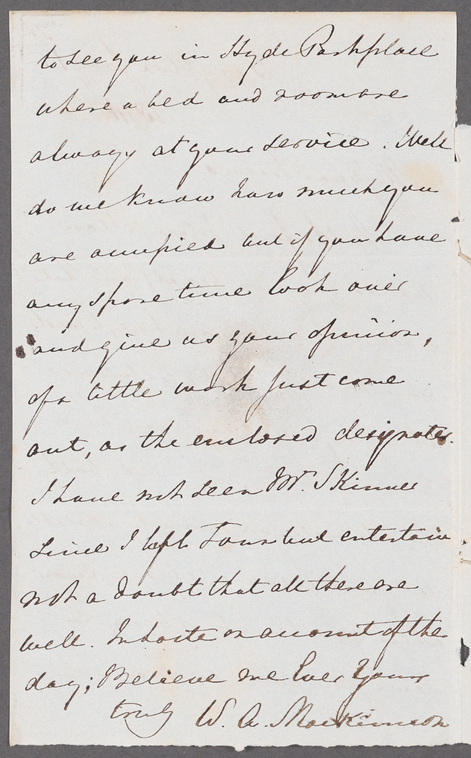 to see you in Hyde Park place
where a bed and room are
always at your service. Well
do we know how much you
are occupied but if you have
any spare time look over
and give us your opinion,
of a little work just come
out, as the enclosed designates.
I have not seen Mr. Skinner
since I left Town but entertain
not a doubt that all there are
well. In haste on account of the
day; Believe me Ever Yours
truly W. A. Mackinnon